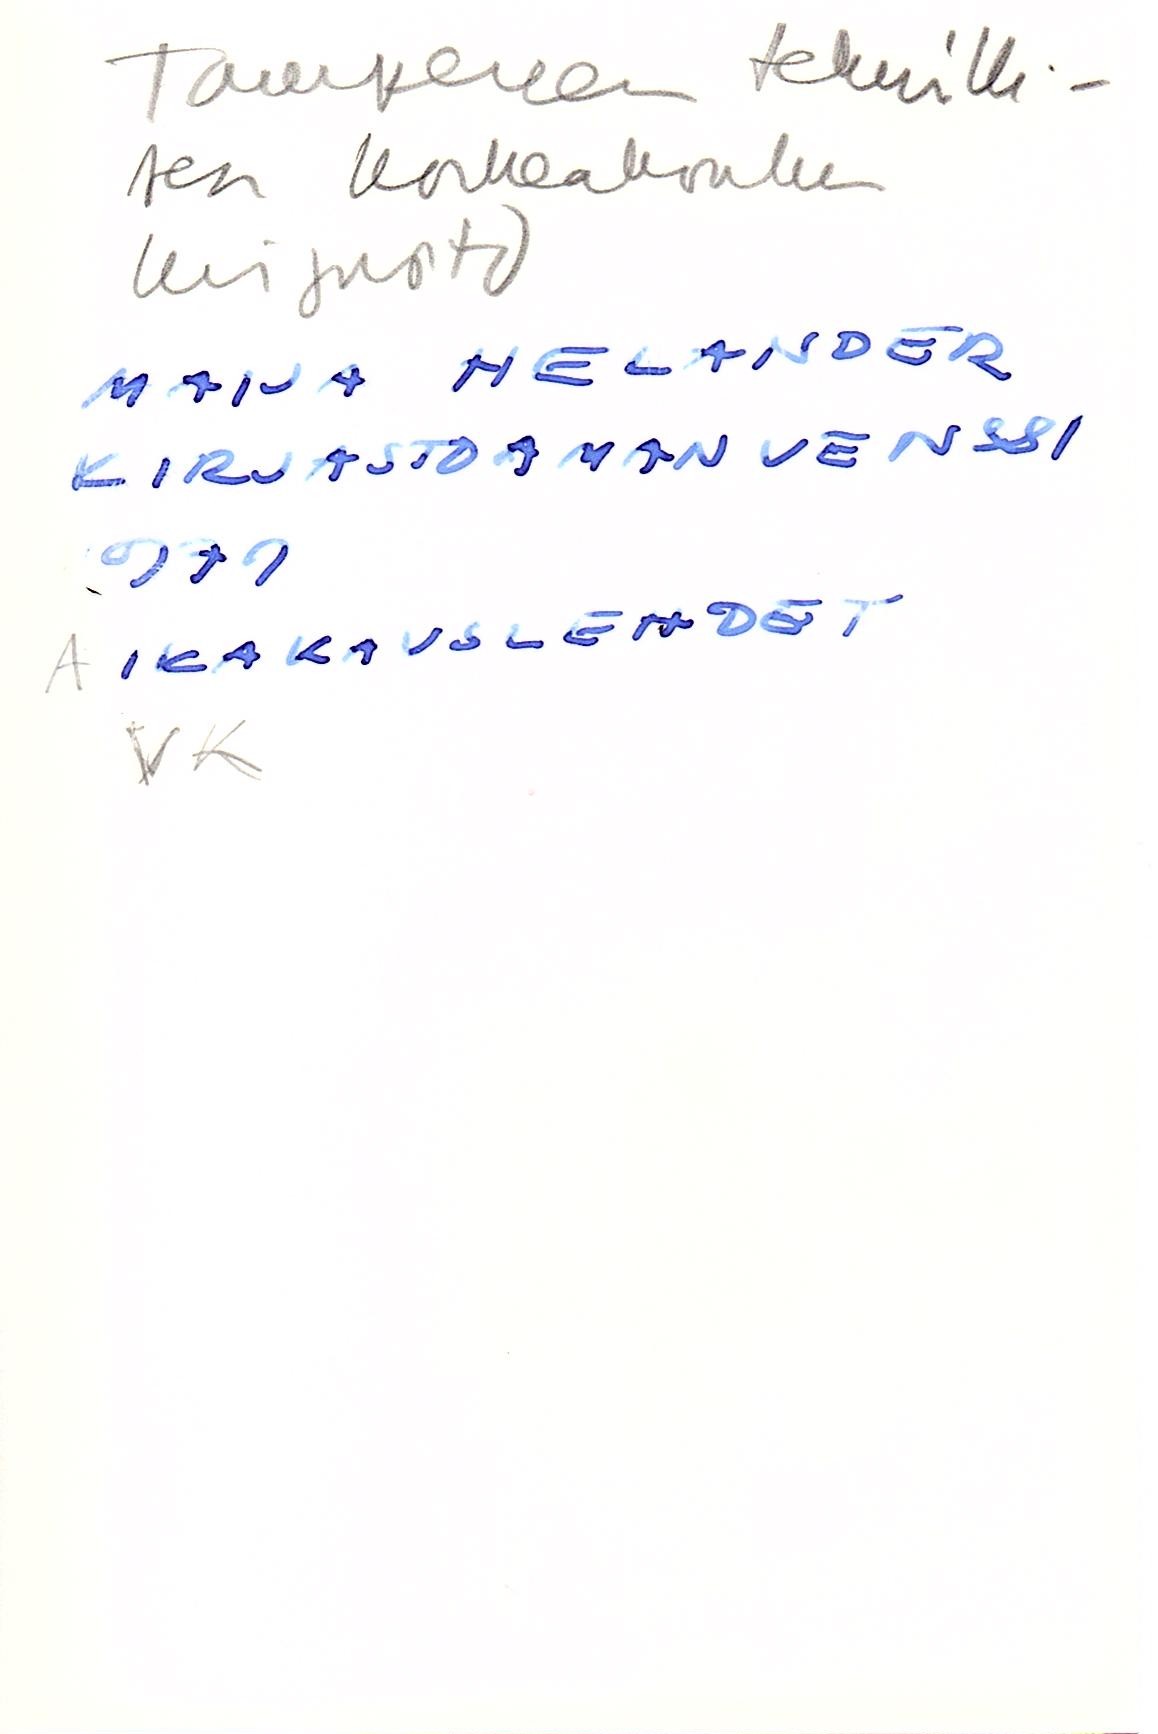 Tampereen teknilli-
sen korkeakoulun
kirjasto
MAIJA HELANDER
KIRJASTOAMANUENSSI
1971
AIKAKAUSLEHDET
VK